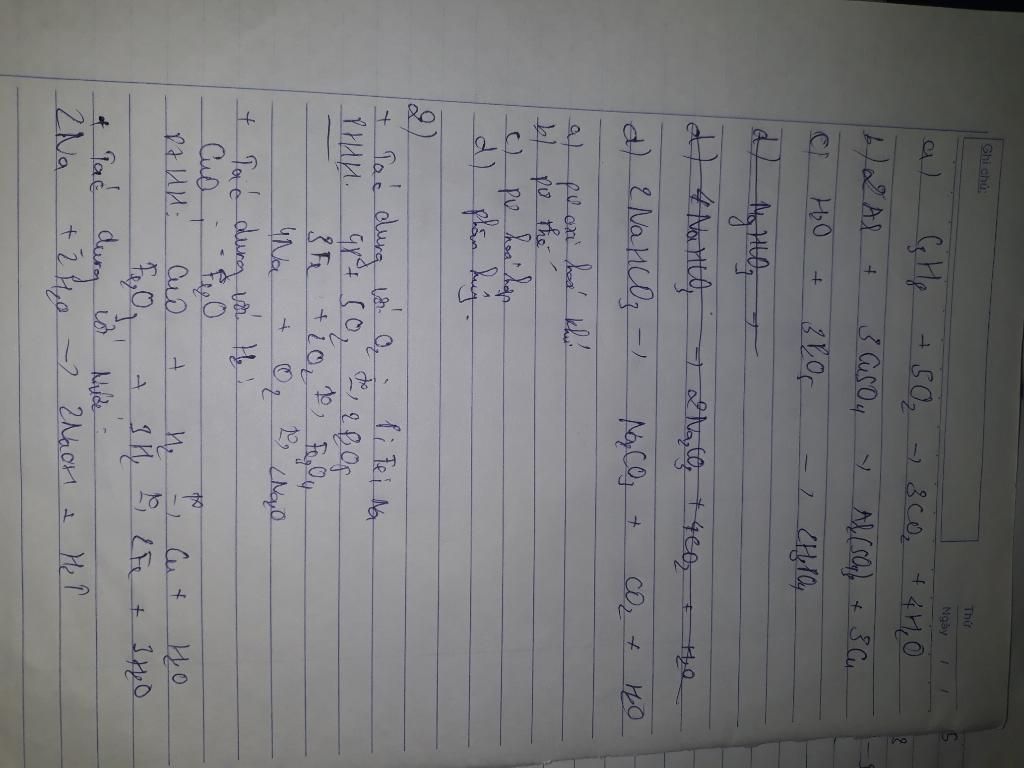 Ghi chú:
Thứ
Ngày , ,
a) C3H8 + 5O2 → 3CO2 + 4H2O
b) 2Al + 3CuSO4 → Al2(SO4)3 + 3Cu
c) H2O + P2O5 → 2H3PO4
d) NaHCO3 →
d) 4NaHCO3 → 2Na2CO3 + 4CO2 + H2O
d) 2NaHCO3 → Na2CO3 + CO2 + H2O
a) pứ oxi hoá khử
b) pứ thế
c) pứ hoá hợp
d) phân huỷ.
2)
+ Tác dụng với O2 : P; Fe; Na
PTHH: 4P + 5O2 t°→ 2P2O5
3Fe + 2O2 t°→ Fe3O4
4Na + O2 t°→ 2Na2O
+ Tác dụng với H2 :
CuO ; Fe2O
PTHH: CuO + H2 t°→ Cu + H2O
Fe2O3 + 3H2 t°→ 2Fe + 3H2O
+ Tác dụng với Nước.
2Na + 2H2O → 2NaOH + H2↑